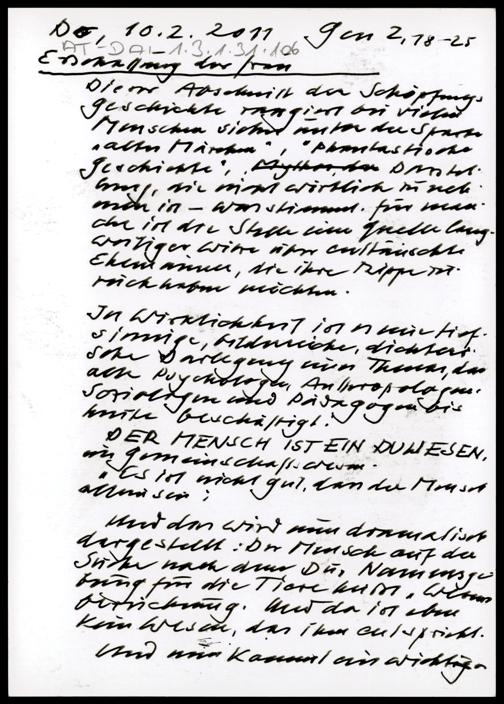 Do, 10.2.2011 Gen 2,18-25
AT-DAI-1.3.1.31.106
Erschaffung der Frau
Dieser Abschnitt der Schöpfungs
geschichte rangiert bei vielen
Menschen sicher unter der Sparte
"altes Märchen", "Phantastische
Geschichte", Mythos, der Darstel-
lung, die nicht wirklich zu neh-
men ist - was stimmt. Für man-
che ist die Stelle eine Quelle lang-
weiliger Witze über enttäuschte
Ehemänner, die ihre Rippe zu-
rückhaben möchten.
In Wirklichkeit ist es eine tief-
sinnige, bildreiche, dichteri-
sche Darlegung eines Themas, das
alle Psychologen, Anthropologen,
Soziologen und Pädagogen bis
heute beschäftigt:
DER MENSCH IST EIN DUWESEN,
ein Gemeinschaftswesen.
"Es ist nicht gut, dass der Mensch
allein sei";
Und das wird nun dramatisch
dargestellt: Der Mensch auf der
Suche nach dem Du. Namensge
bung für die Tiere heißt "Wesens
berührung. Und da ist eben
kein Wesen, das ihm entspricht.
Und nun kommt ein wichtiger